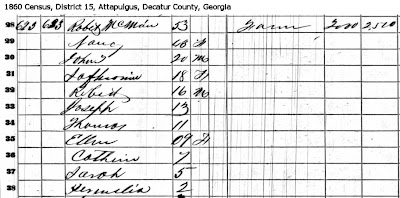 1860 Census, District 15, Attapulgus, Decatur County, Georgia
28 623 623 Robert McMain 53 Farm 3000 2500
29 Nanc 48 F
30 John 20 m
31 18 F
32 Robert 16 m
33 Joseph 13
34 Thomas 11
35 Ellen 09 F
36 7
37 Sarah 5
38 2